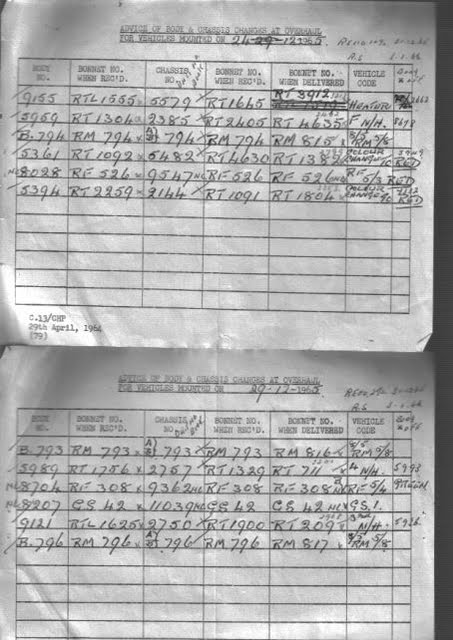 ADVICE OF BODY & CHASSIS CHANGES AT OVERHAUL
FOR VEHICLES MOUNTED ON 24-29-12-1965
A.S 1.1.66
BODY NO. BONNET NO. WHEN REC'D. CHASSIS NO. BONNET NO. WHEN REC'D. BONNET NO. WHEN DELIVERED VEHICLE CODE Body off
9155 RTL 1555 5579 RT 1645 RT 3912 HEATER
5959 RT 1304 2385 RT 2405 RT 4635 F N/H. 8698
B.794 RM 794 794 RM 794 RM 815 RM 5/8
5361 RT 1092 5482 RT 4630 RT 1382 COLOUR CHANGE RED
8028 RF 526 9547 RF 526 RF 526 RF 5/3 RED
5394 RT 2259 2144 RT 1091 RT 1804 COLOUR CHANGE RED
C.13/CHF
29th April, 1964
(79)
ADVICE OF BODY & CHASSIS CHANGES AT OVERHAUL
FOR VEHICLES MOUNTED ON 29-12-1965
A.S
BODY NO. BONNET NO. WHEN REC'D. CHASSIS NO. BONNET NO. WHEN REC'D. BONNET NO. WHEN DELIVERED VEHICLE CODE Body off
B.793 RM 793 793 RM 793 RM 816 RM 5/8
5989 RT 1756 2757 RT 1329 RT 711 4 N/H. 5998
8704 RF 308 9362 RF 308 RF 308 RF 5/4 GREEN
8207 G.S. 42 11039 GS 42 G.S. 42 G.S.1.
9121 RTL 1625 2750 RT 1900 RT 2095 N/H.
B.796 RM 796 796 RM 796 RM 817 RM 5/8